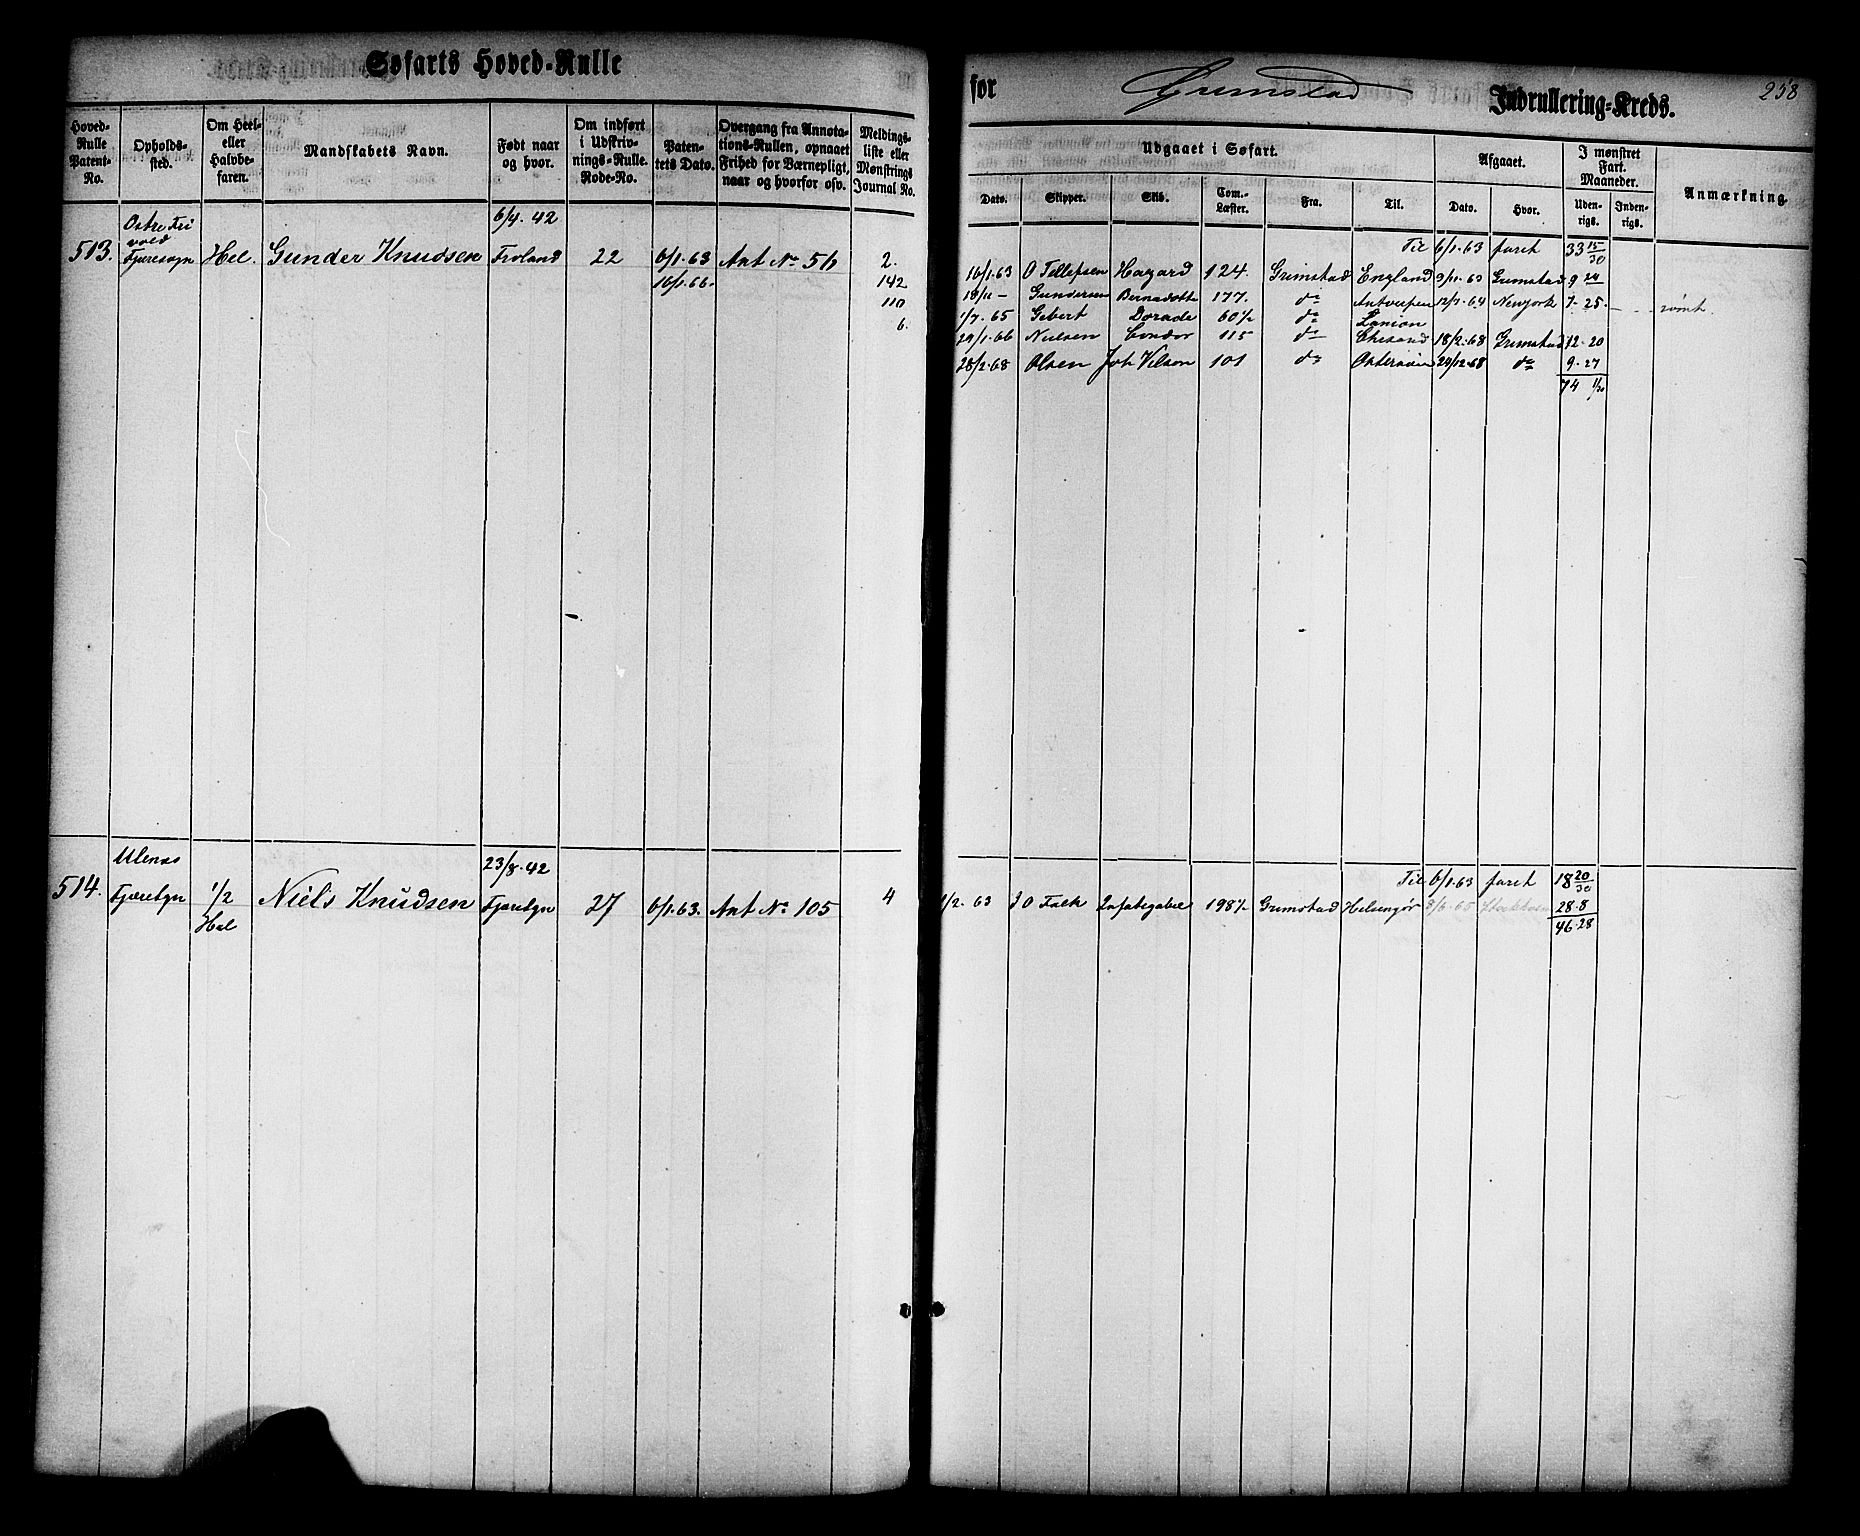 Søfarts Hoved-Rulle
for Grimstad Indrullering-Kreds.
258
Hoved-Rulle Patent-No.
Opholds-sted.
Om Heel- eller Halvbe-faren.
Mandskabets Navn.
Født naar og hvor.
Om indført i Udskriv-nings-Rulle. Rode-No.
Paten-tets Dato.
Overgang fra Annota-tions-Rullen, opnaaet Frihed for Værnepligt, naar og hvorfor osv.
Meldings-liste eller Mønstrings Journal No.
Udgaaet i Søfart.
Dato. Skipper. Skib. Com.-Læster. Fra. Til.
Afgaaet.
Dato. Hvor.
I mønstret Fart. Maaneder.
Uden-rigs. Inden-rigs.
Anmærkning
513. Østre Fri vold Fjæresogn Hel. Gunder Knudsen 6/4. 42 Froland 22 6/1. 63 16/1. 66. Ant No 56 2. 142 110 6.
Til 6/1. 63 faret 33 15/30
16/1. 63 O Tellefsen Hazard 124. Grimstad England 9/11. 63 Grimstad 9 24
18/11 — Gundersen Bernadotte 177. do Antverpen 12/7. 64 Newyork 7-25 rømt.
1/7. 65 Gebert Dorade 60½ do
29/1. 66 Nielsen Condor 115 do 18/2. 68 Grimstad 12-20
28/2. 68 Olsen Joh Vilson 101 do Østersøen 24/12. 68 do 9-27
74 1/30
514. Ulenæs Fjæresgn 1/2 Hel Niels Knudsen 23/8. 42 Fjæresgn 27 6/1. 63. Ant No 105 4
Til 6/1. 63 faret 18 20/30
1/2. 63 J O Falk 198½ Grimstad Helsingør 28-8
46-28